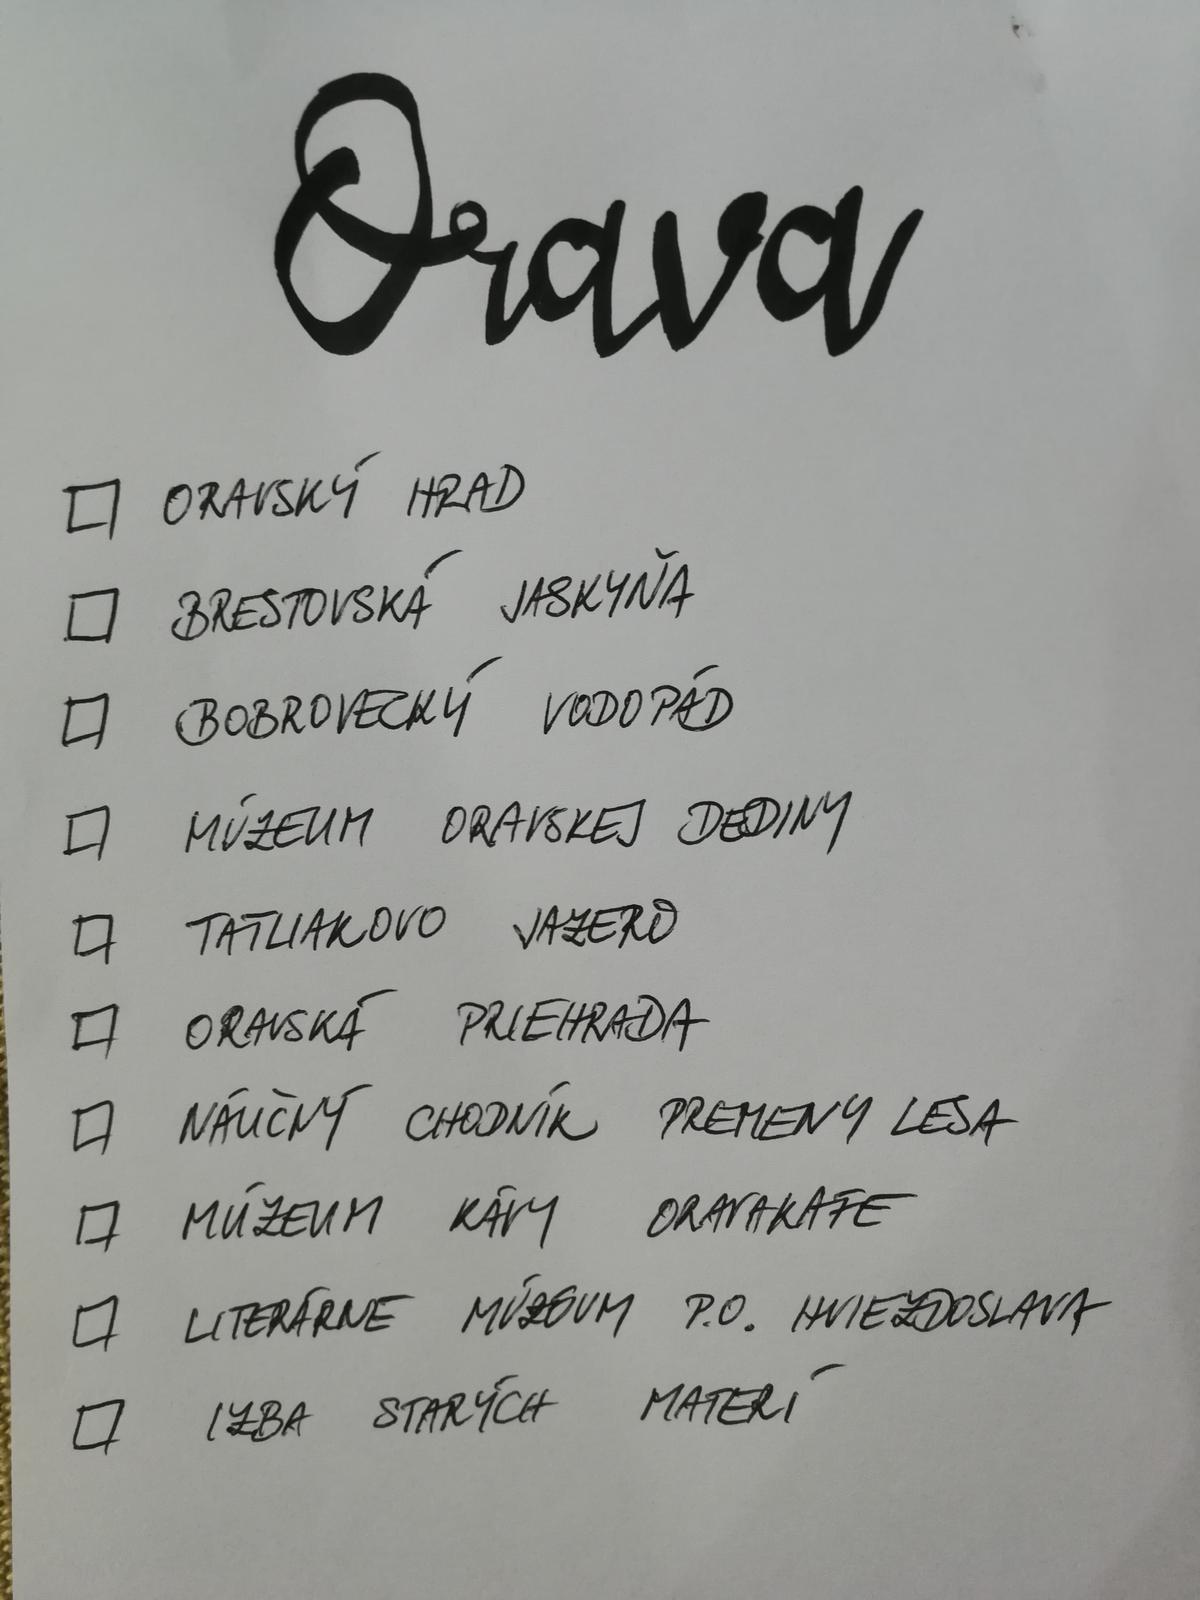 Orava
ORAVSKÝ HRAD
BRESTOVSKÁ JASKYŇA
BOBROVECKÝ VODOPÁD
MÚZEUM ORAVSKEJ DEDINY
TATLIAKOVO JAZERO
ORAVSKÁ PRIEHRADA
NÁUČNÝ CHODNÍK PREMENY LESA
MÚZEUM KÁVY ORAVAKAFE
LITERÁRNE MÚZEUM P.O. HVIEZDOSLAVA
IZBA STARÝCH MATERÍ